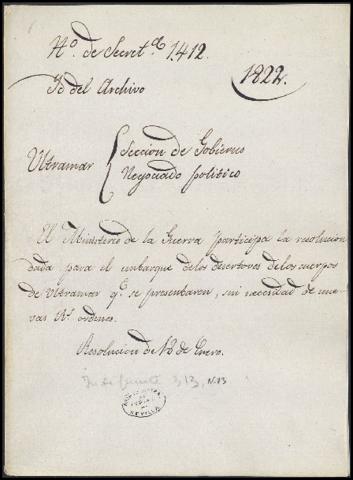 N.º de Secret.ª 1.412.
Id del Archivo
1822.
Ultramar
Seccion de Gobierno
Negociado politico
El Ministerio de la Guerra participa la resolucion
dada para el embarque de los desertores de los cuerpos
de Ultramar q.e se presentaren, sin necesidad de nue-
vas R.s ordenes.
Resolucion de 18 de Enero.
Indiferente 313, N.13
SEVILLA